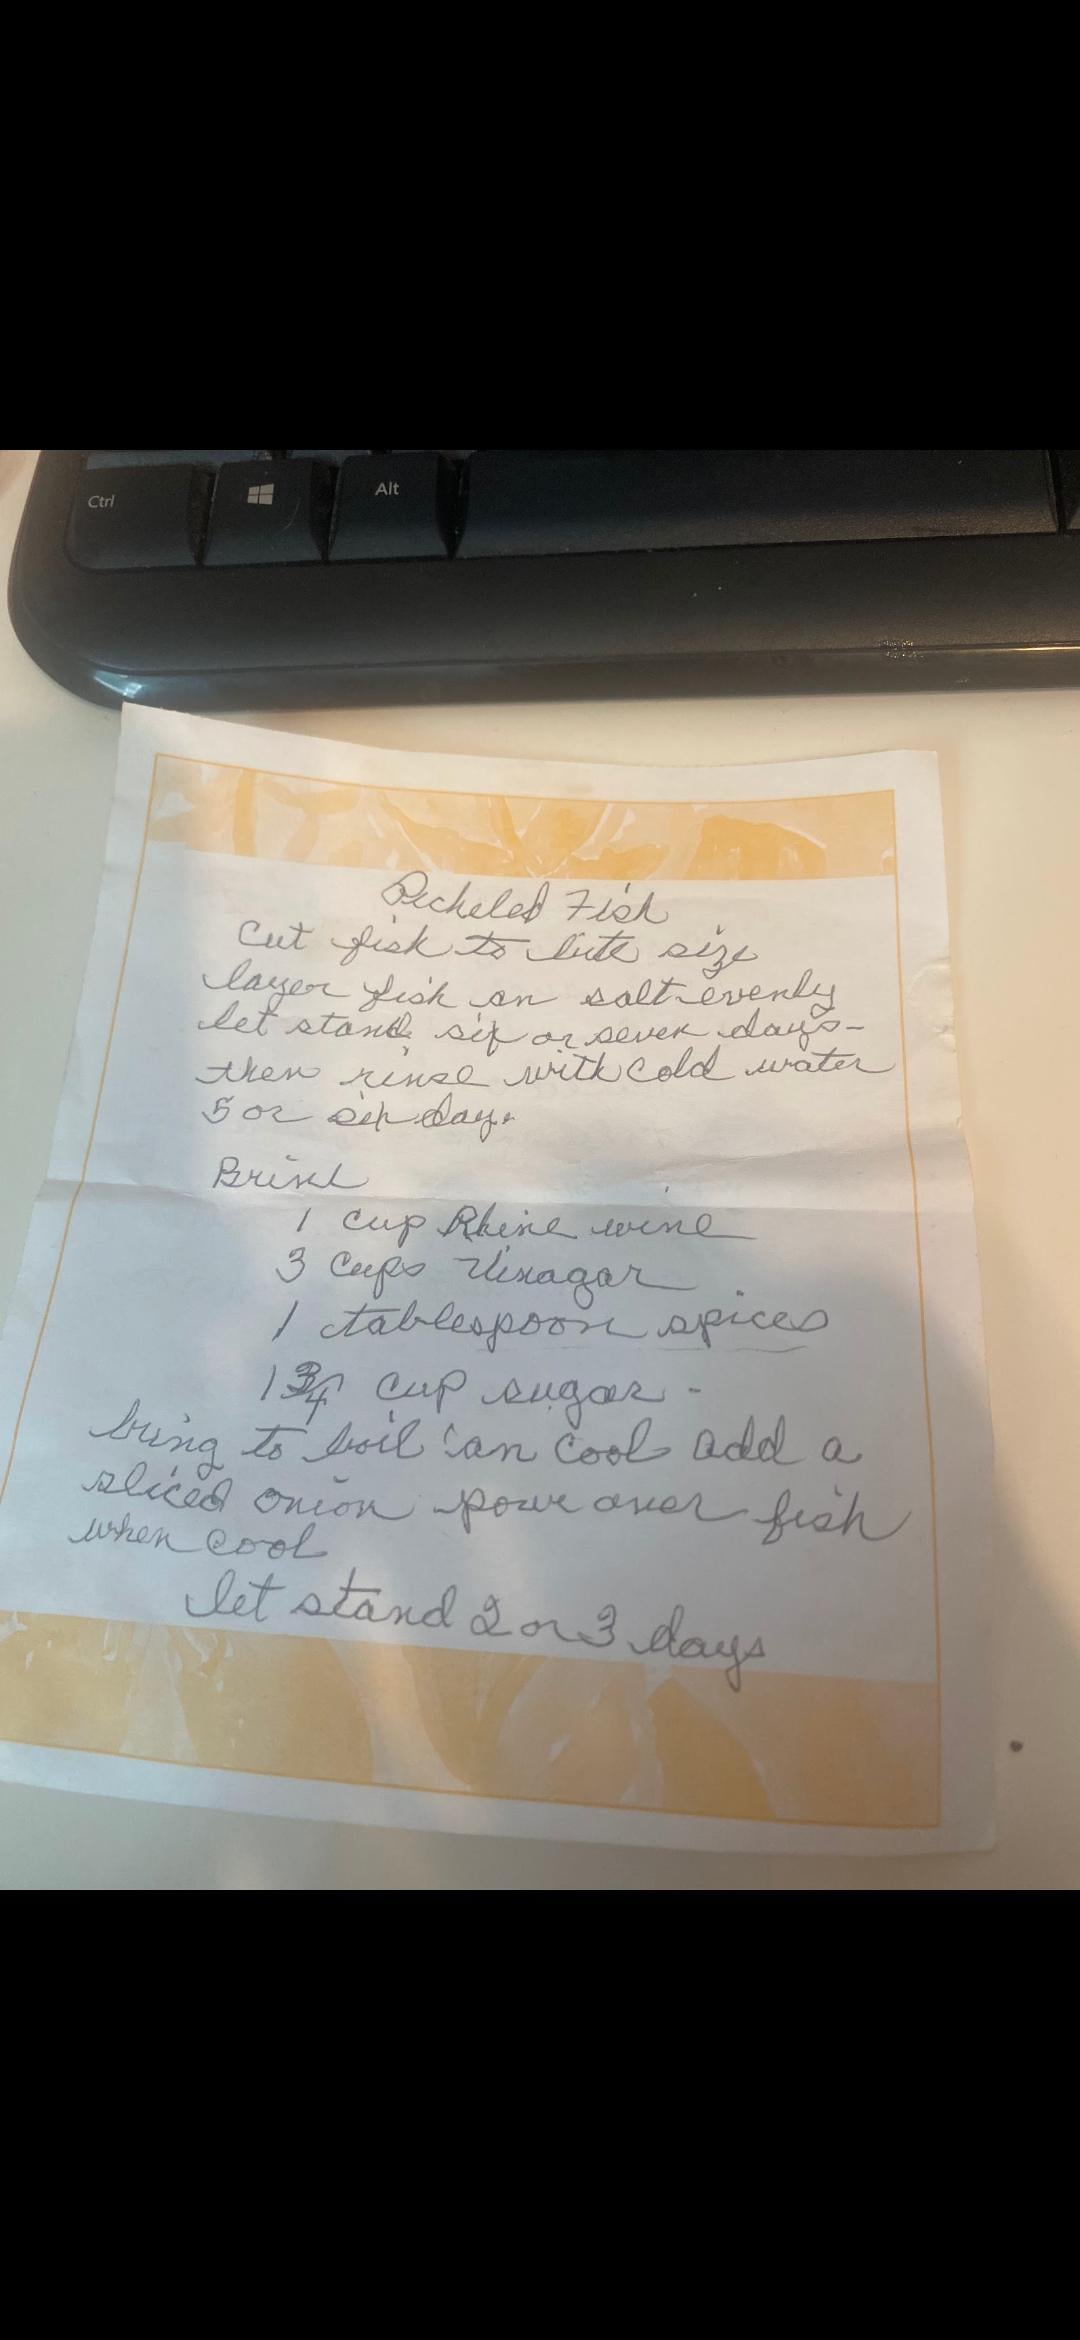 Ctrl
Alt
Pickeled Fish
Cut fish to bite size
layer fish an salt evenly
let stand six or seven days-
then rinse with cold water
5 or six day.
Brine
1 cup Rhine wine
3 cups Vinagar
1 tablespoon spices
1 3/4 cup sugar -
bring to boil an cool add a
sliced onion pour over fish
when cool
let stand 2 or 3 days